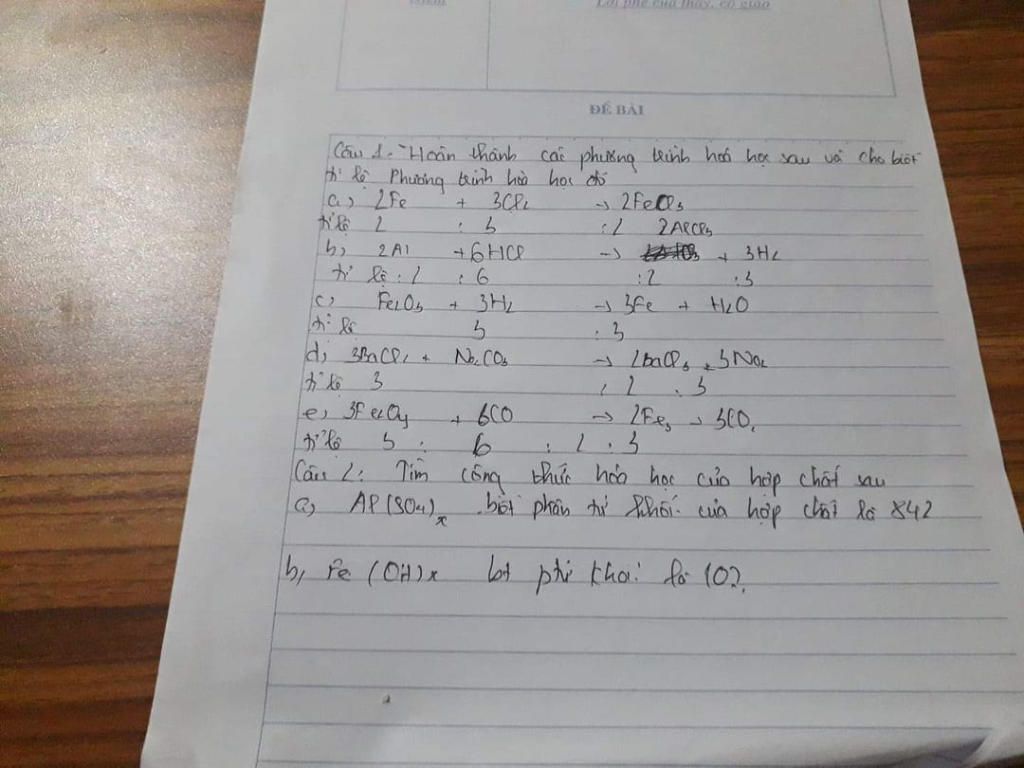 Lời phê của thầy, cô giáo
ĐỀ BÀI
Câu 1: Hoàn thành các phương trình hoá học sau và cho biết
tỉ lệ Phương trình hoá học đó
a, 2Fe + 3Cl₂ → 2FeCl₃
tỉ lệ 2 : 3 : 2 2AlCl₃
b, 2Al + 6HCl → + 3H₂
tỉ lệ : 2 : 6 : 2 : 3
c, Fe₂O₃ + 3H₂ → 3Fe + H₂O
tỉ lệ 3 : 3
d, 3BaCl₂ + Na₂CO₃ → 2BaCl₃ + 3Na₂
tỉ lệ 3 : 2 : 3
e, 3Fe₂O₃ + 6CO → 2Fe₃ → 3CO₂
tỉ lệ 3 : 6 : 2 : 3
Câu 2: Tìm công thức hoá học của hợp chất sau
a, Al(SO₄)ₓ biết phân tử khối của hợp chất là 342
b, Fe(OH)x bt khối là 107